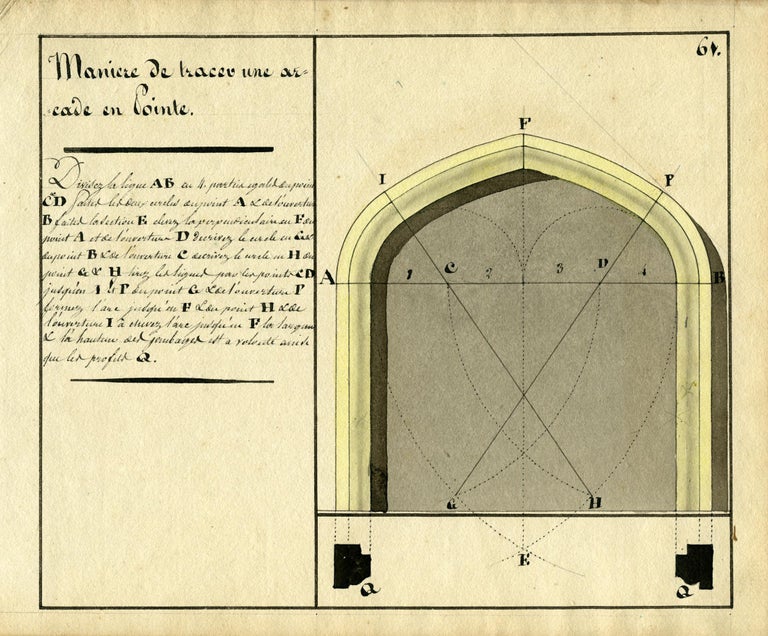 61.
Maniere de tracer une ar-
cade en Pointe.
Divisez la ligne AB en 4 parties egales du point
CD faites les deux cercles du point A & de l'ouverture
B faites la section E elevez la perpendiculaire en F du
point A et de l'ouverture D decrivez le cercle en G &
du point B & de l'ouverture C decrivez le cercle en H du
point G & H tirez les lignes par les points CD
jusqu'en I et P du point G & de l'ouverture P
formez l'arc jusqu'en F & du point H & de
l'ouverture I achevez l'arc jusqu'en F la largeur
& la hauteur des Jambages est a volonté ainsi
que les profils Q.
F
I
P
A
1
C
2
3
D
4
B
G
H
E
Q
Q